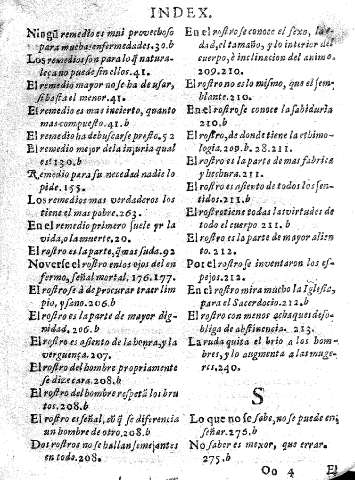 INDEX.
Ningũ remedio es mui provechoso
para muchas enfermedades. 30. b
Los remedios son para lo q̃ natura-
leça no puede sin ellos. 41.
El remedio mayor no se ha de usar,
si basta el menor. 41.
El remedio es mas incierto, quanto
mas compuesto. 41. b
El remedio ha de buscarse presto. 52
El remedio mejor de la injuria qual
es? 130. b
Remedio para su necedad nadie lo
pide. 155.
Los remedios mas verdaderos los
tiene el mas pobre. 263.
En el remedio primero suele yr la
vida, o la muerte. 20.
El rostro es la parte, q̃ mas suda. 92
No verse el rostro en los ojos del en
fermo, señal mortal, 176. 177.
El rostro se à de procurar traer lim
pio, y sano. 206. b
El rostro es la parte de mayor dig-
nidad. 206. b
El rostro es asiento de la honra, y la
verguença. 207.
El rostro del hombre propriamente
se dize cara. 208. b
El rostro del hombre respetã los bru
tos. 208. b
El rostro es señal, cõ q̃ se diferencia
un hombre de otro. 208. b
Dos rostros no se hallan semejantes
en todo. 208.
En el rostro se conoce el sexo, la e-
dad, el tamaño, y lo interior del
cuerpo, è inclinacion del animo.
209. 210.
El rostro no es lo mismo, que el sem-
blante. 210.
En el rostro se conoce la sabiduria
210. b
El rostro, de donde tiene la ethimo-
logia. 209. b. 28. 211.
El rostro es la parte de mas fabrica
y hechura. 211.
El rostro es asiento de todos los sen-
tidos. 211. b
El rostro tiene todas las virtudes de
todo el cuerpo 211. b
El rostro es la parte de mayor alien
to. 212.
Por el rostro se inventaron los es-
pejos. 212.
En el rostro mira mucho la Iglesia,
para el Sacerdocio. 212. b
El rostro con menor achaque deso-
bliga de abstinencia. 213.
La ruda quita el brio a los hom-
bres, y lo augmenta a las muge-
res. 240.
S
Lo que no se sabe, no se puede en-
señar. 276. b
No saber es mexor, que errar.
275. b
Oo 4 El